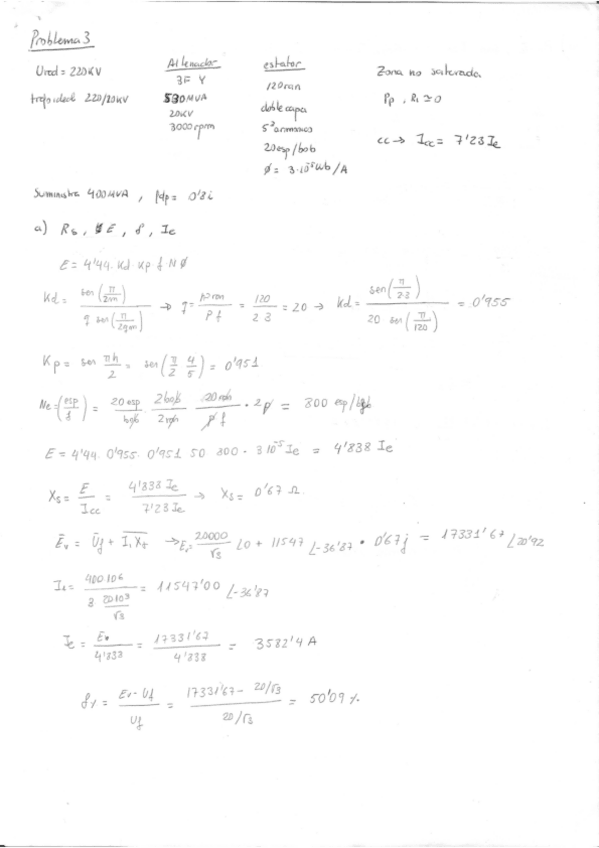 Problema 3
Ured = 220KV
trafo ideal 220/20KV
Alternador
3F Y
530MVA
20KV
3000rpm
estator
120ran
doble capa
5º armonico
20esp/bob
ϕ = 3·10⁻⁵Wb/A
Zona no saturada
Pp, Ri ≃ 0
cc → Icc = 7'23Ie
Suministra 400MVA, fdp = 0'8i
a) , E, δ, Ie
E = 4'44·Kd·Kp f N ϕ
Kd = sen(π/2m) / q sen(π/2qm) → q = / = 120/2·3 = 20 → Kd = sen(π/2·3) / 20 sen(π/120) = 0'955
Kp = sen πh/2 = sen(π/2 4/5) = 0'951
Ne = (esp/f) = 20esp/bob 2bob/2ran 120ran/p f · 2p = 800 esp/
E = 4'44·0'955·0'951 50 800·3 10⁻⁵ Ie = 4'838 Ie
Xs = E/Icc = 4'838 Ie/7'23 Ie → Xs = 0'67 Ω
Ēv = Ūf + → Ev = 20000/√3 ∠0 + 11547∠-36'87 · 0'67j = 17331'67∠20'92
Ii = 400 106 / 3 20 10³/√3 = 11547'00∠-36'87
Ie = Ev/4'838 = 17331'67/4'838 = 3582'4 A
= Ev-Uf/Uf = 17331'67-20/√3 / 20/√3 = 50'09 %